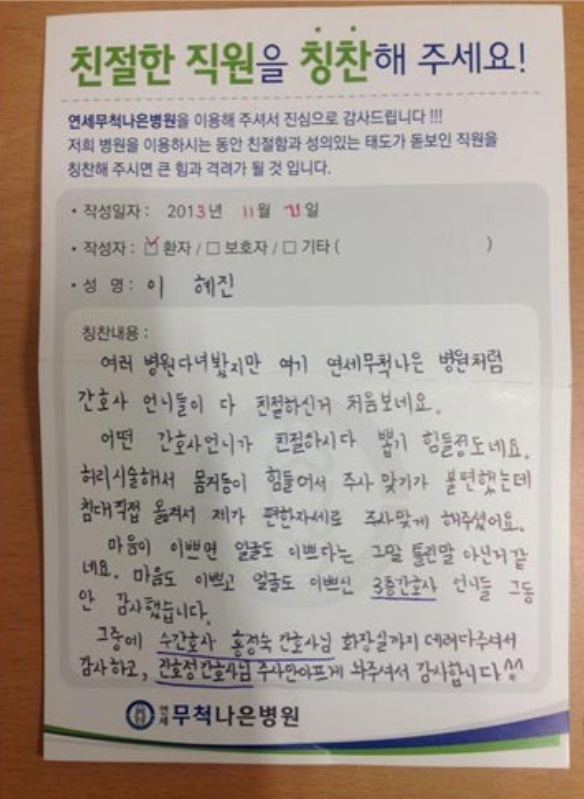 친절한 직원을 칭찬해 주세요!
연세무척나은병원을 이용해 주셔서 진심으로 감사드립니다 !!!
저희 병원을 이용하시는 동안 친절함과 성의있는 태도가 돋보인 직원을
칭찬해 주시면 큰 힘과 격려가 될 것 입니다.
• 작성일자 : 2013년 11월 일
• 작성자 : ☑ 환자 / □ 보호자 / □ 기타 ( )
• 성 명 : 이 혜진
칭찬내용 :
여러 병원다녀봤지만 여기 연세무척나은 병원처럼
간호사 언니들이 다 친절하신거 처음보네요.
어떤 간호사언니가 친절하시다 뽑기 힘들정도네요.
허리시술해서 몸거동이 힘들어서 주사 맞기가 불편했는데
침대직접 옮겨서 제가 편한자세로 주사맞게 해주셨어요.
마음이 이쁘면 얼굴도 이쁘다는 그말 틀린말 아닌거같
네요. 마음도 이쁘고 얼굴도 이쁘신 3층간호사 언니들 그동
안 감사했습니다.
그중에 수간호사 홍경숙 간호사님 화장실까지 데려다주셔서
감사하고, 간호정간호사님 주사안아프게 놔주셔서 감사합니다^^
연세 무척나은병원